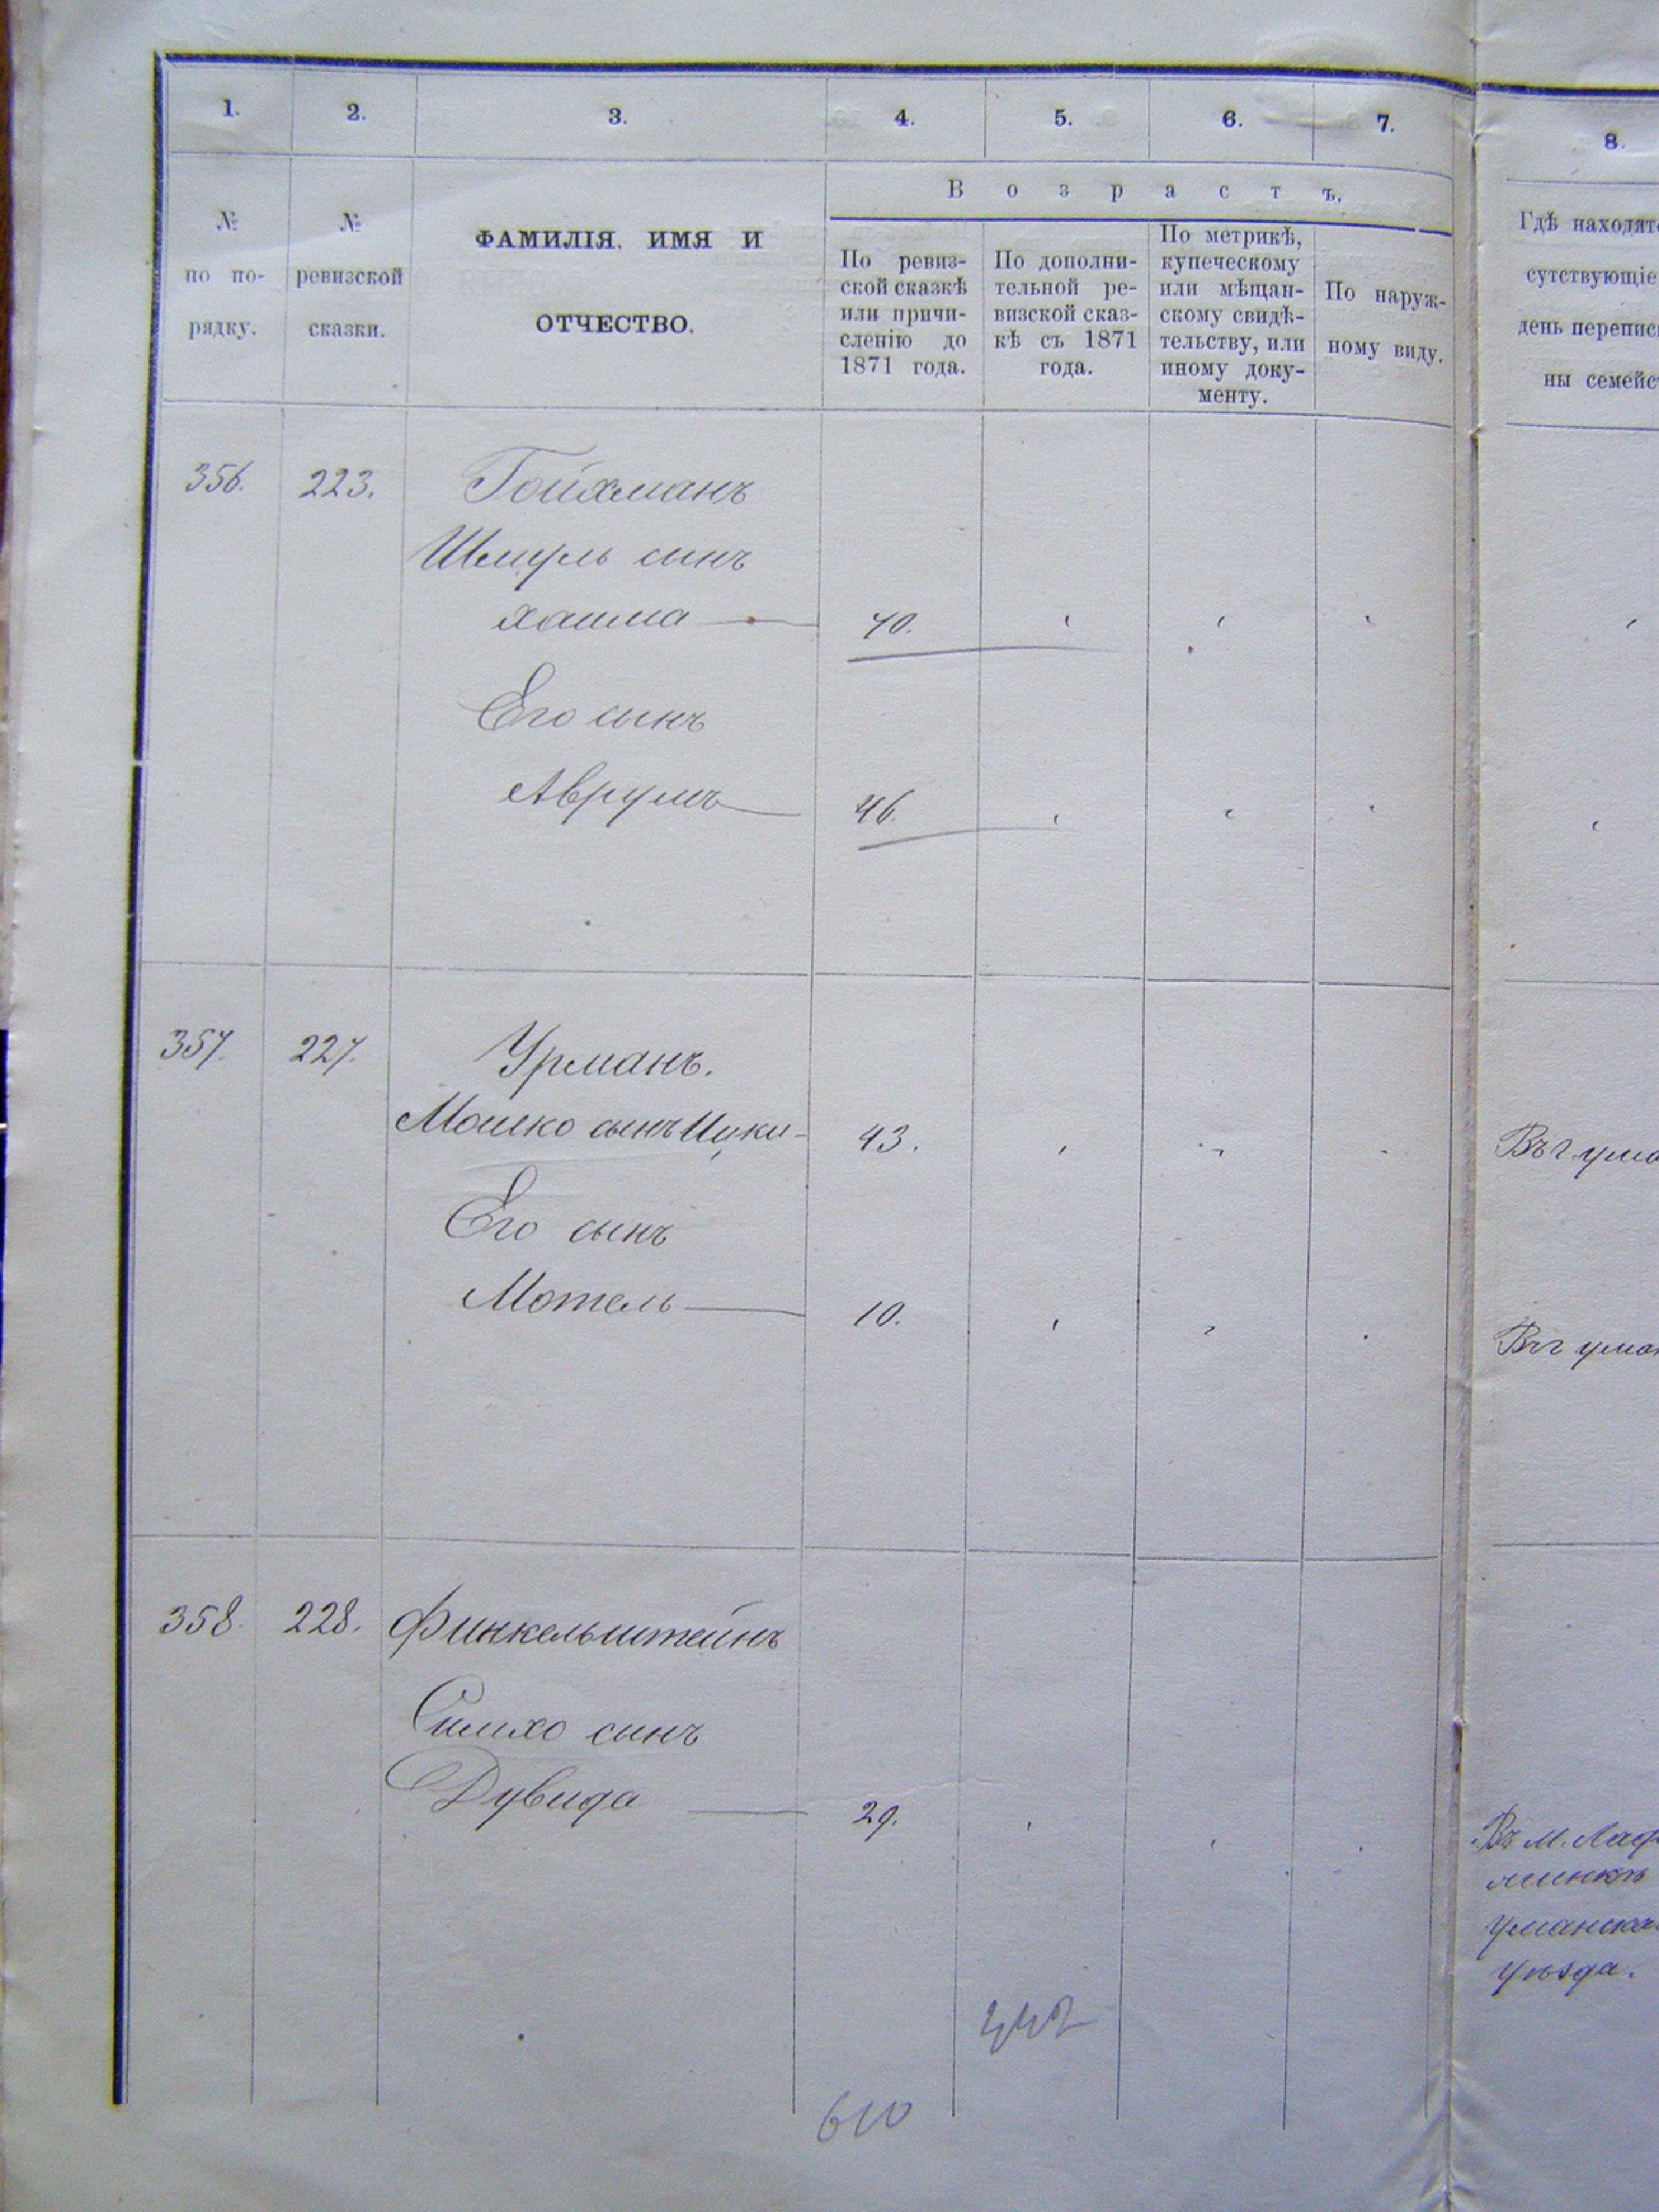 1. 2. 3. 4. 5. 6. 7. 8.
В о з р а с т ъ.
№ по по- рядку.
№ ревизской сказки.
ФАМИЛІЯ, ИМЯ И
ОТЧЕСТВО.
По ревиз-
ской сказкѣ
или причи-
сленію до
1871 года.
По дополни-
тельной ре-
визской сказ-
кѣ съ 1871
года.
По метрикѣ,
купеческому
или мѣщан-
скому свидѣ-
тельству, или
иному доку-
менту.
По наруж-
ному виду.
Гдѣ находят
сутствующіе
день перепис
ны семейс
356. 223. Гойхманъ
Шмуль сынъ
Хаима 70.
Его сынъ
Аврумъ 46.
357. 227. Урманъ.
Мошко сынъ Ицки- 43. Въ г. ума
Его сынъ
Мотель 10. Въ г ума
358. 228. Финкельштейнъ
Симхо сынъ
Дувида 29. Въ м.
Уманска
Уѣзда.
610